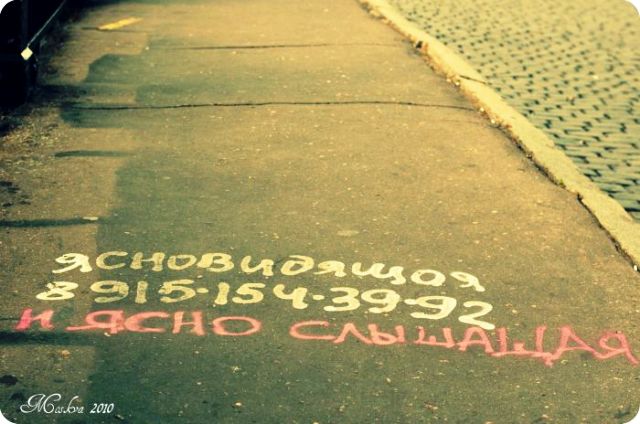 ясновидящая
8 915-154-39-92
и ясно слышащая
Moskva 2010